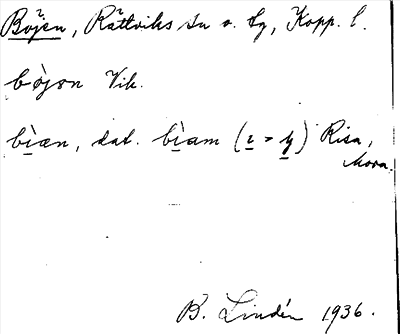 Bojen, Rättviks sn o. tg, Kopp. l.
bòjən Vik.
bìæn, dat. bìam (ɩ > y) Risa,
Mora.
B. Lindén 1936.